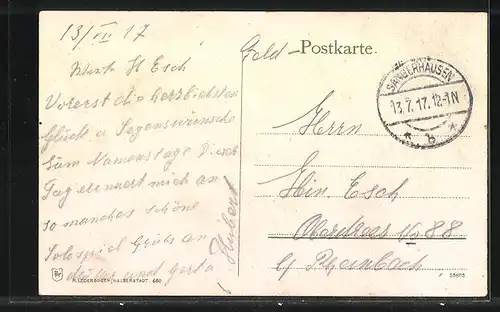 13/VII 17
Feld-Postkarte.
SANGERHAUSEN
13.7.17. 12-1N
* b *
H Esch
Vorerst die herzlichsten
Glück u Segenswünsche
zum Namenstage Dieser
Tag erinnert mich an
so manches schöne
Solospiel Gruß an
und
Hubert
Herrn
Hin. Esch
Oberdrees 88
b/ Rheinbach
R. LEDERBOGEN, HALBERSTADT. 650